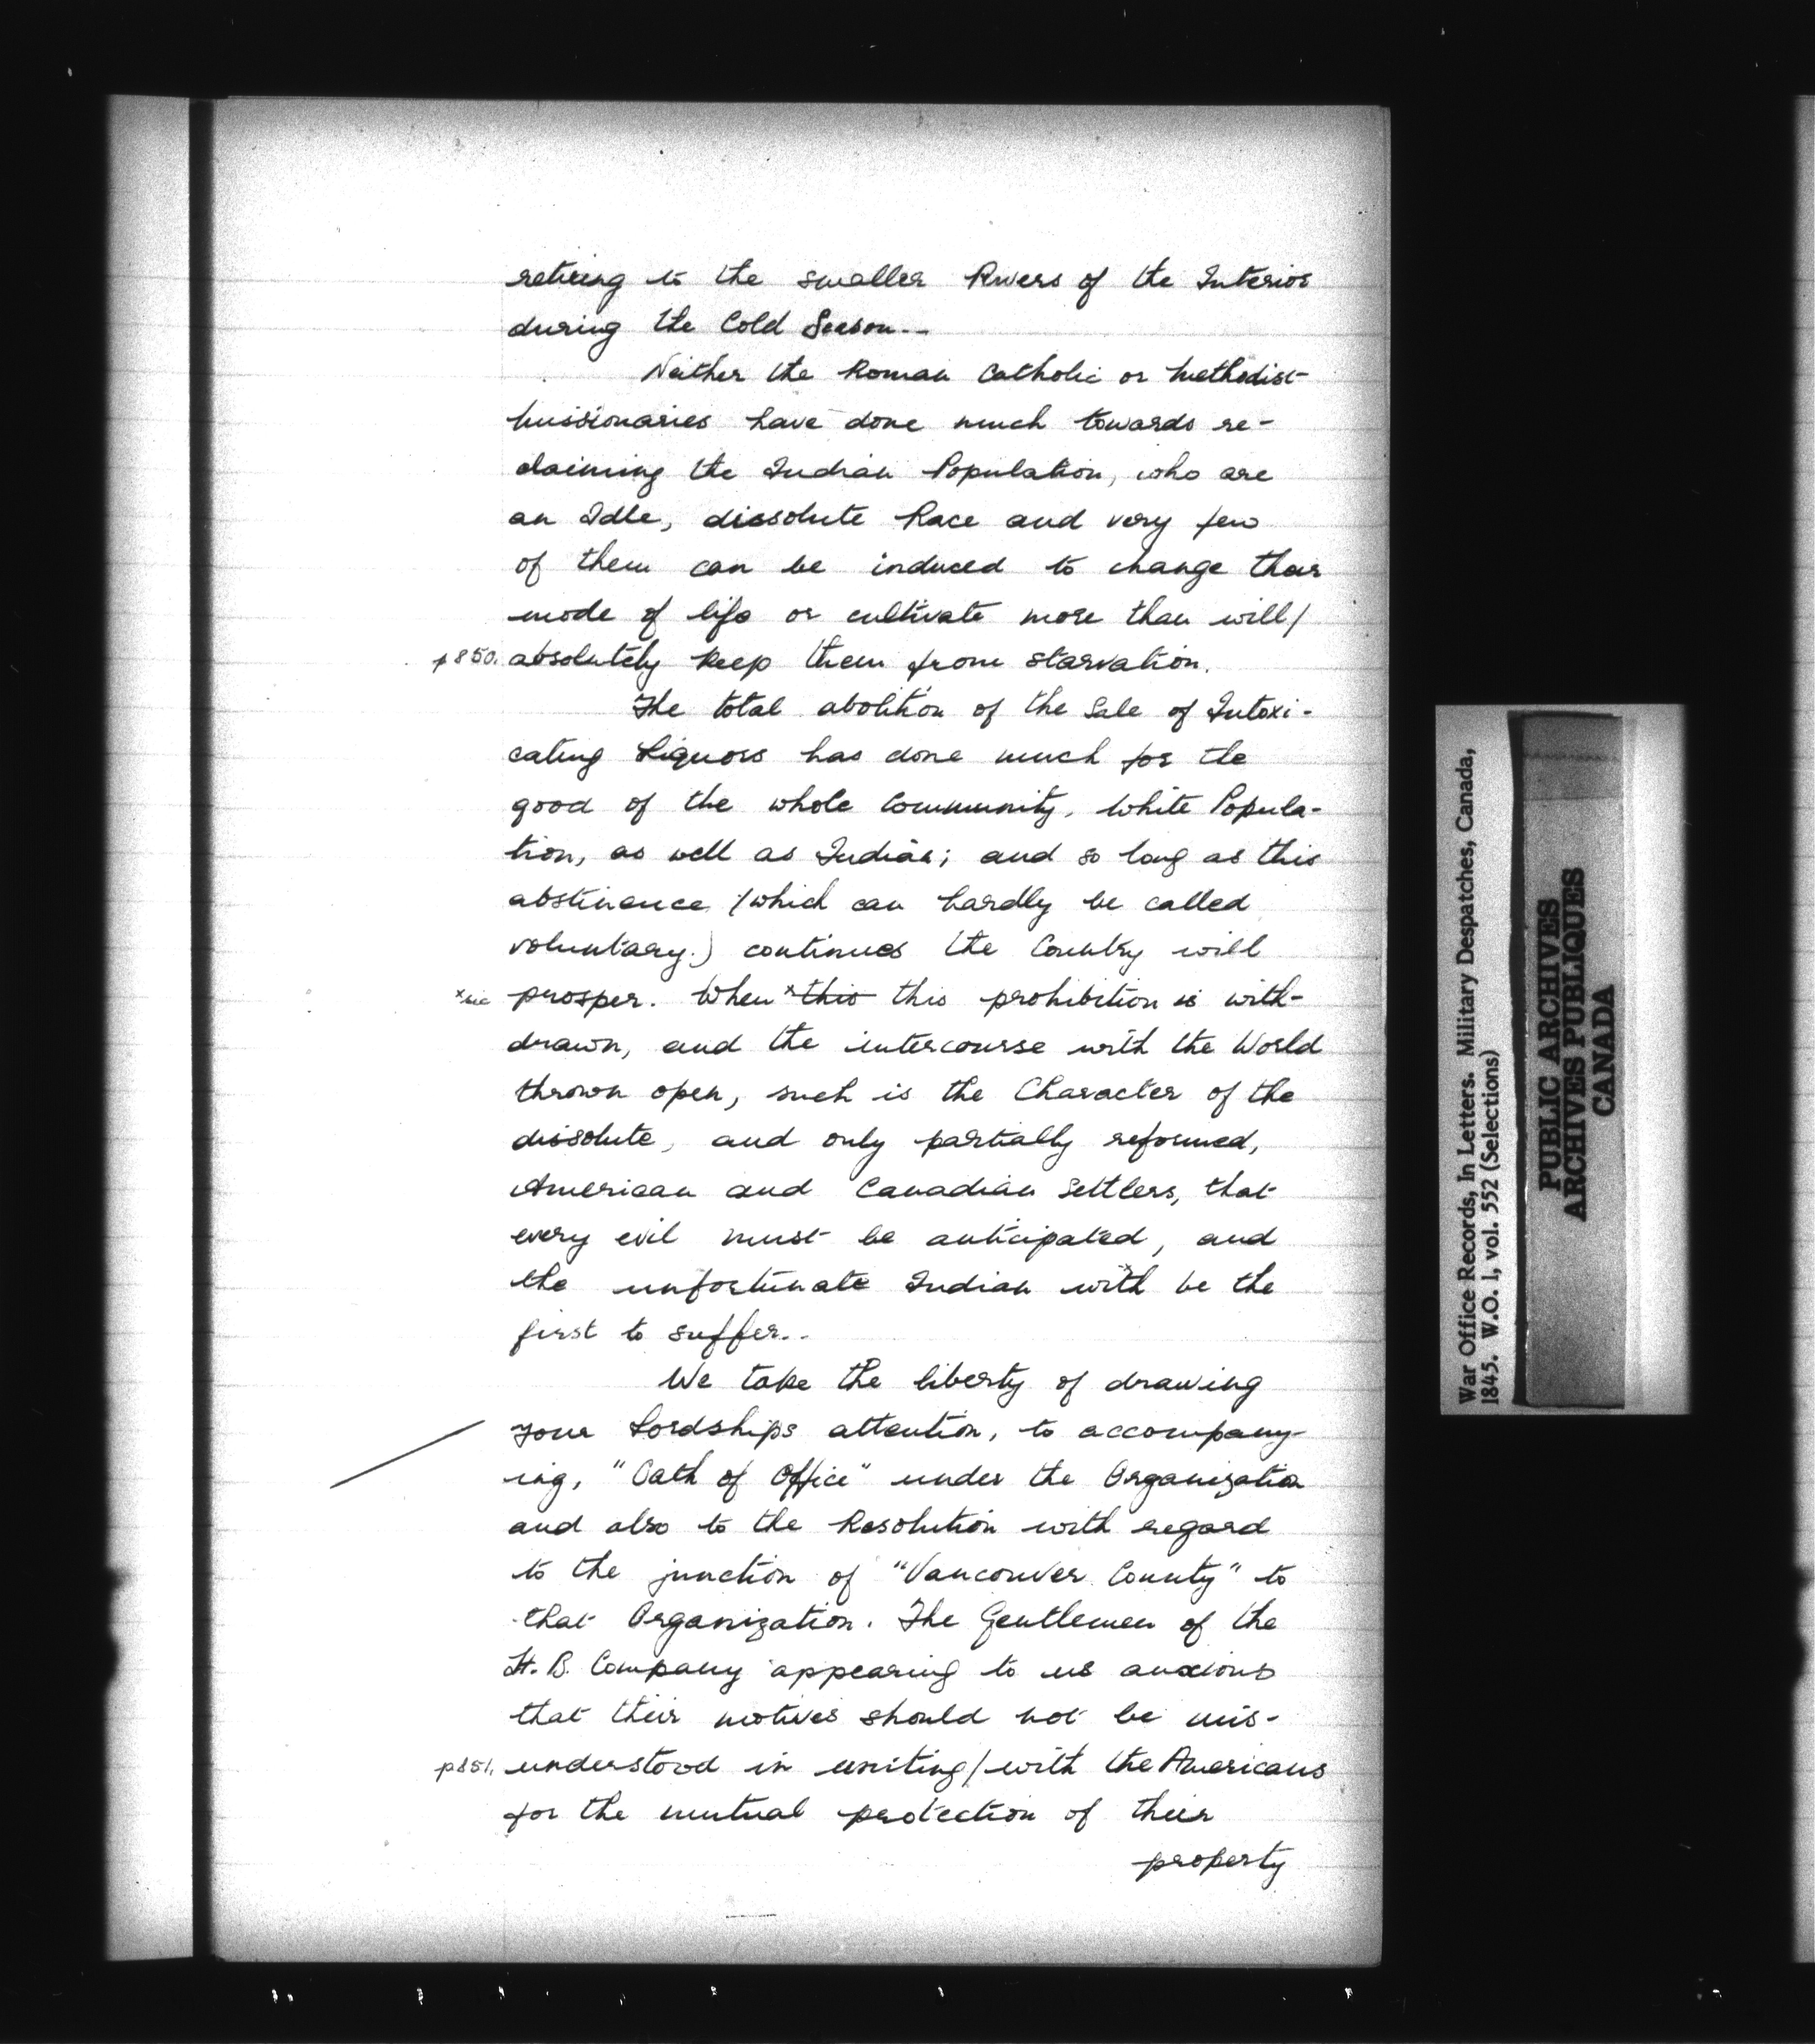 retiring to the smaller Rivers of the Interior
during the Cold Season..
Neither the Roman Catholic or Methodist
Missionaries have done much towards re-
claiming the Indian Population, who are
an Idle, dissolute Race and very few
of them can be induced to change their
mode of life or cultivate more than will/
p850. absolutely keep them from starvation.
The total abolition of the Sale of Intoxi-
cating Liquors has done much for the
good of the whole Community, White Popula-
tion, as well as Indian; and so long as this
abstinence (which can hardly be called
voluntary.) continues the Country will
xsic prosper. When x this this prohibition is with-
drawn, and the intercourse with the World
thrown open, such is the Character of the
dissolute, and only partially reformed,
American and Canadian Settlers, that
every evil must be anticipated, and
the unfortunate Indian with be the
first to suffer..
We take the liberty of drawing
your Lordships attention, to accompany-
ing, "Oath of Office" under the Organization
and also to the Resolution with regard
to the junction of "Vancouver County" to
that Organization. The Gentlemen of the
H. B. Company appearing to us anxious
that their motives should not be mis-
p851. understood in uniting/with the Americans
for the mutual protection of their
property
War Office Records, In Letters. Military Despatches, Canada,
1845. W.O. 1, vol. 552 (Selections)
PUBLIC ARCHIVES
ARCHIVES PUBLIQUES
CANADA